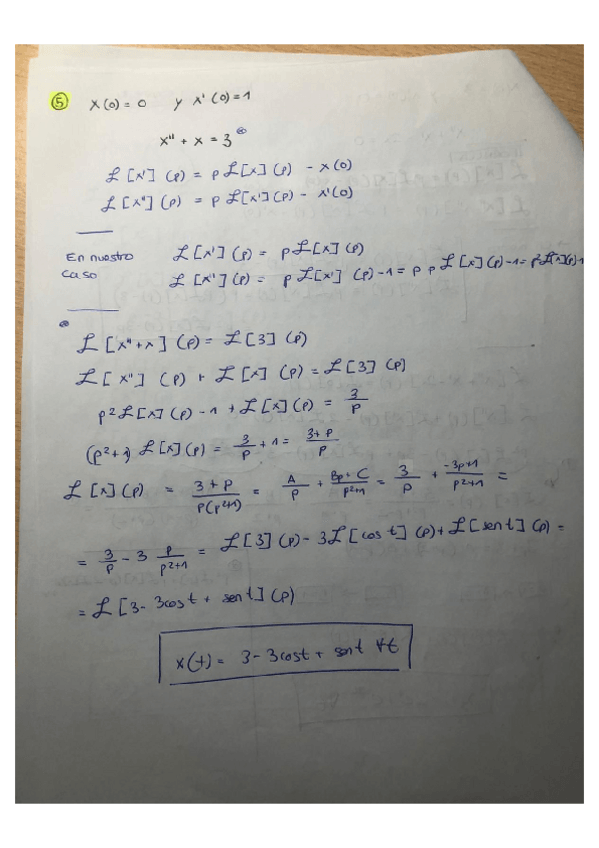 ⑤ x(0) = 0 y x'(0) = 1
x'' + x = 3 ⊛
ℒ[x'](p) = pℒ[x](p) - x(0)
ℒ[x''](p) = pℒ[x'](p) - x'(0)
En nuestro caso
ℒ[x'](p) = pℒ[x](p)
ℒ[x''](p) = pℒ[x'](p) - 1 = p pℒ[x](p) - 1 = p²ℒ[x](p) - 1
⊛
ℒ[x''+x](p) = ℒ[3](p)
ℒ[x''](p) + ℒ[x](p) = ℒ[3](p)
p²ℒ[x](p) - 1 + ℒ[x](p) = 3/p
(p²+1)ℒ[x](p) = 3/p + 1 = 3+p/p
ℒ[x](p) = 3+p/p(p²+1) = A/p + Bp+C/p²+1 = 3/p + -3p+1/p²+1 =
= 3/p - 3 p/p²+1 = ℒ[3](p) - 3ℒ[cos t](p) + ℒ[sen t](p) =
= ℒ[3 - 3cos t + sen t](p)
x(t) = 3 - 3cos t + sen t ∀t